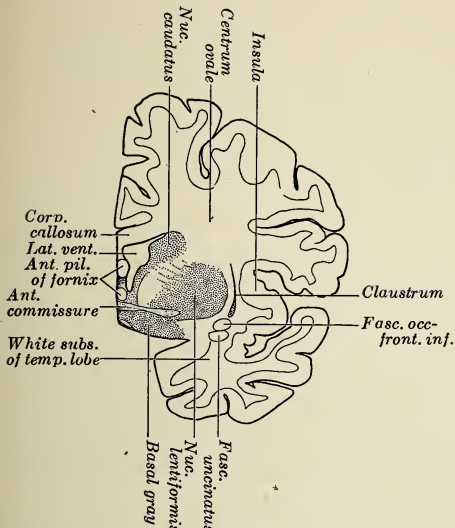 Nuc.
caudatus
Centrum
ovale
Insula
Corp.
callosum
Lat. vent.
Ant. pil.
of fornix
Ant.
commissure
White subs.
of temp. lobe
Claustrum
Fasc. occ-
front. inf.
Basal gray
Nuc.
lentiformis
Fasc.
uncinatus